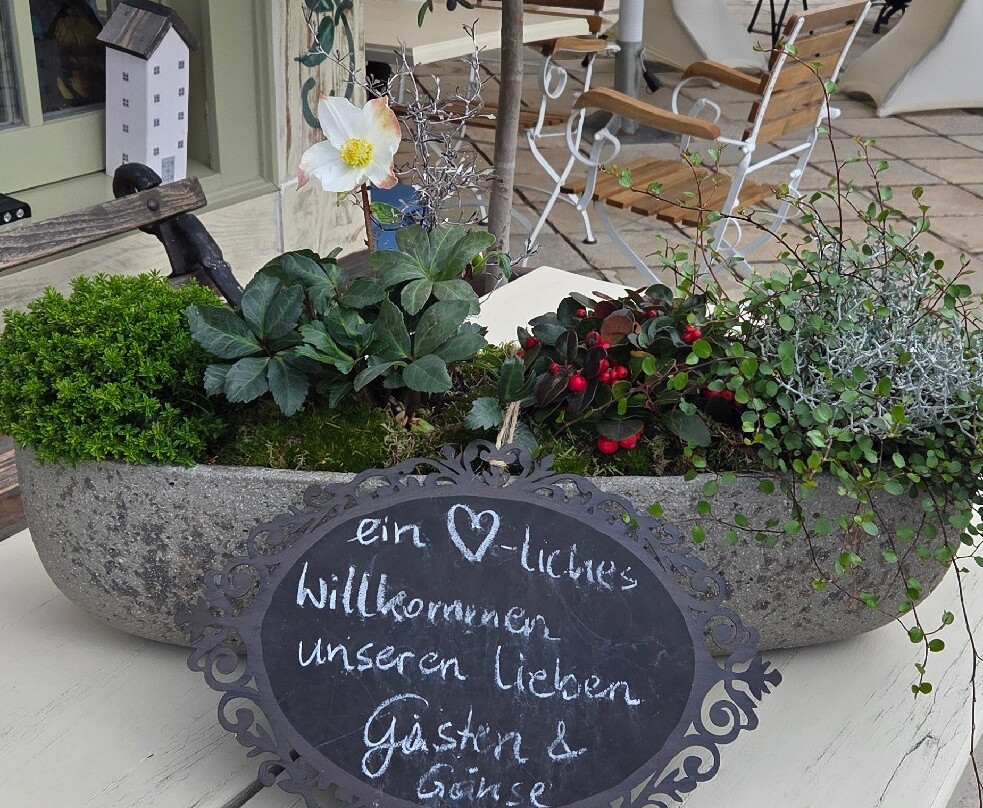 ein ♡-liches
Willkommen
unseren lieben
Gästen &
Gänse